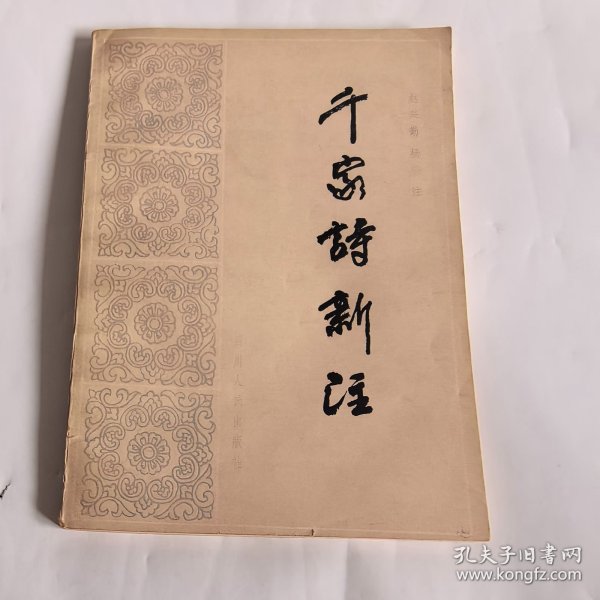 千家詩新注
川人民出版社
孔夫子旧書网
www.kongfz.com